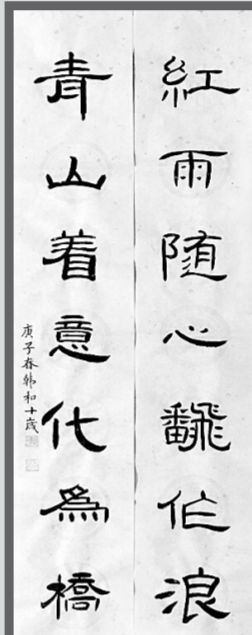 紅雨随心翻作浪
青山着意化為橋
庚子春韩和十歲